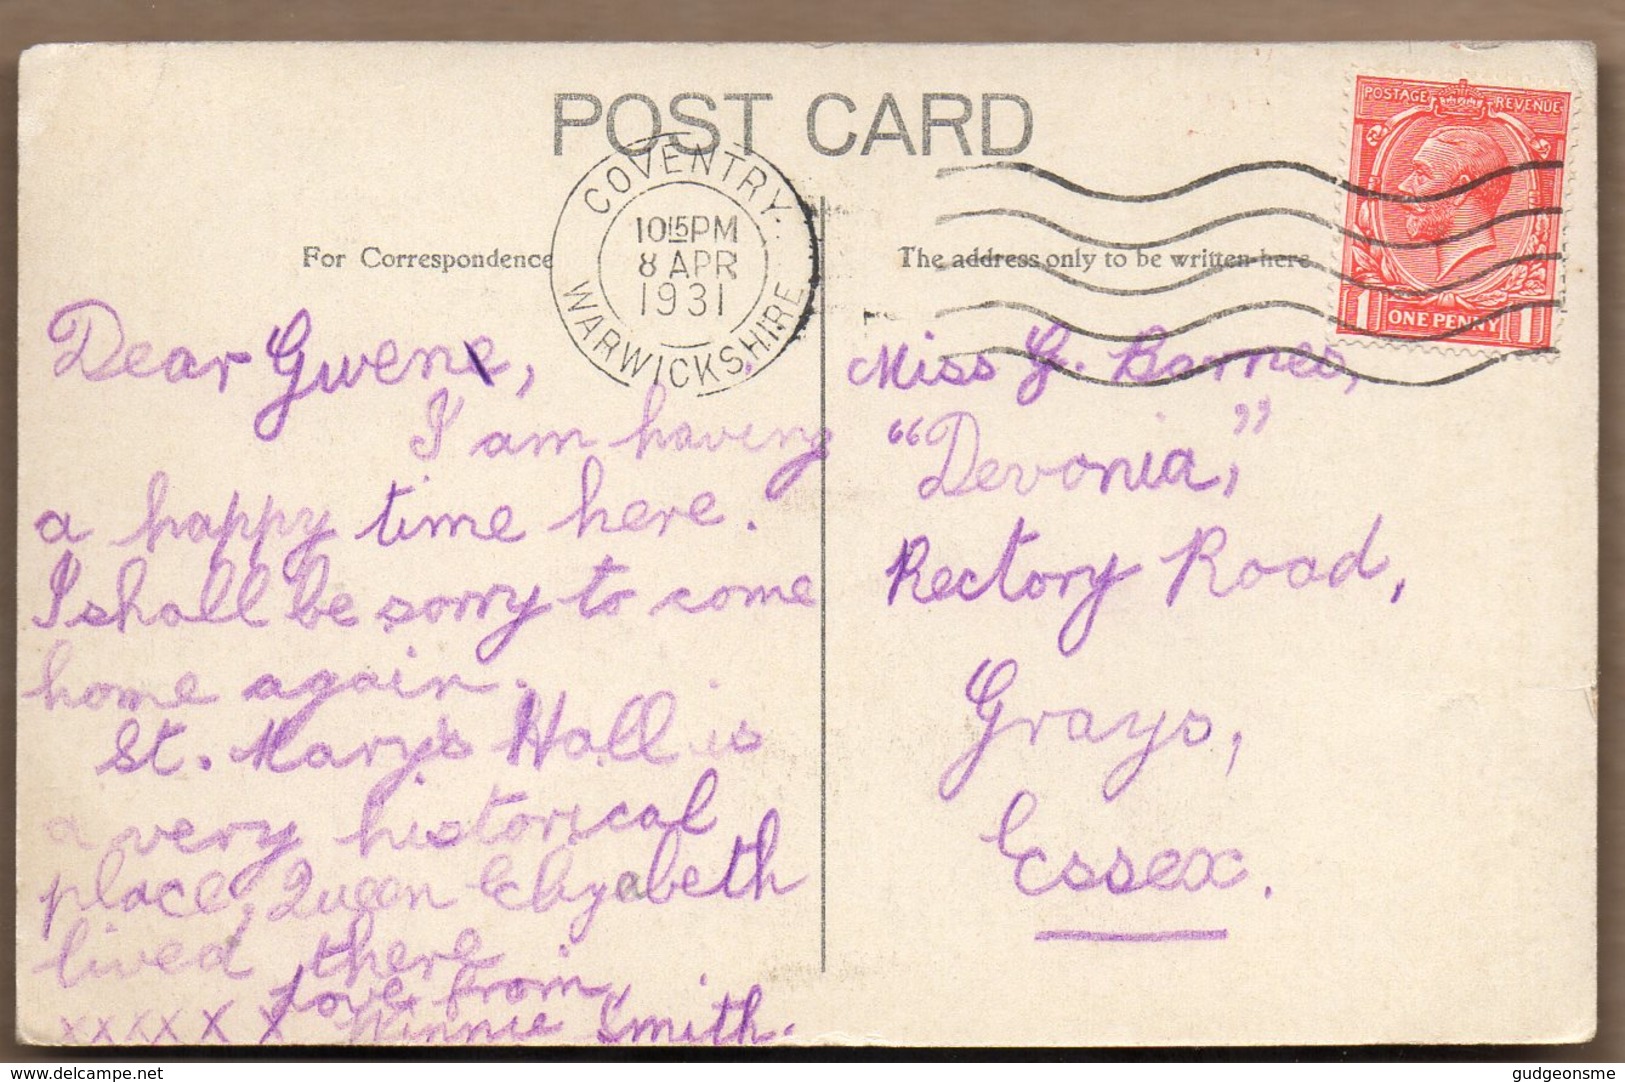 POST CARD
COVENTRY.
WARWICKSHIRE
10 15 PM
8 APR
1931
POSTAGE REVENUE
1 ONE PENNY 1
For Correspondence
The address only to be written here
Dear Gwen,
I am having
a happy time here.
I shall be sorry to come
home again.
St. Mary's Hall is
a very historical
place, Queen Elizabeth
lived there
Love from,
xxxxx x x Winnie Smith.
Miss G. Barnes,
"Devonia,"
Rectory Road,
Grays,
Essex.
www.delcampe.net
gudgeonsme